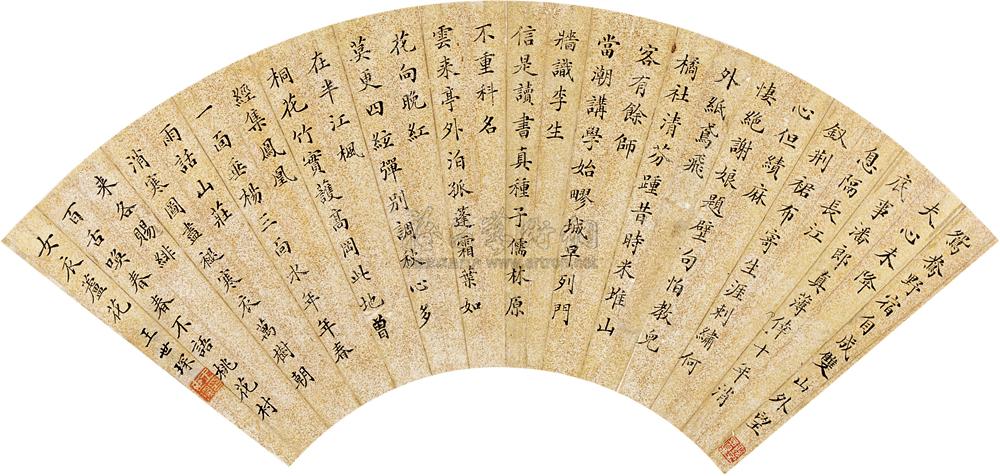 鴛鴦野宿自成雙山外望
夫心未降
底事潘郎真薄倖十年消
息隔長江
釵荆裙布寄生涯刺繡何
心但績麻
悽絶謝娘題壁句怕教兒
外紙鳶飛
橘社清芬踵昔時米堆山
客有餘師
當湖講學始疁城早列門
牆識李生
信是讀書真種子儒林原
不重科名
雲來亭外泊孤蓬霜葉如
花向晚紅
莫更四絃彈別調秋心多
在半江楓
桐花竹實護高岡此地曾
經集鳳凰
一面垂楊三面水年年春
雨話山莊
消寒圖盡褪寒衣萬樹朝
來各賜緋
百舌喚春春不語桃花村
女衣蘆花
王世琛